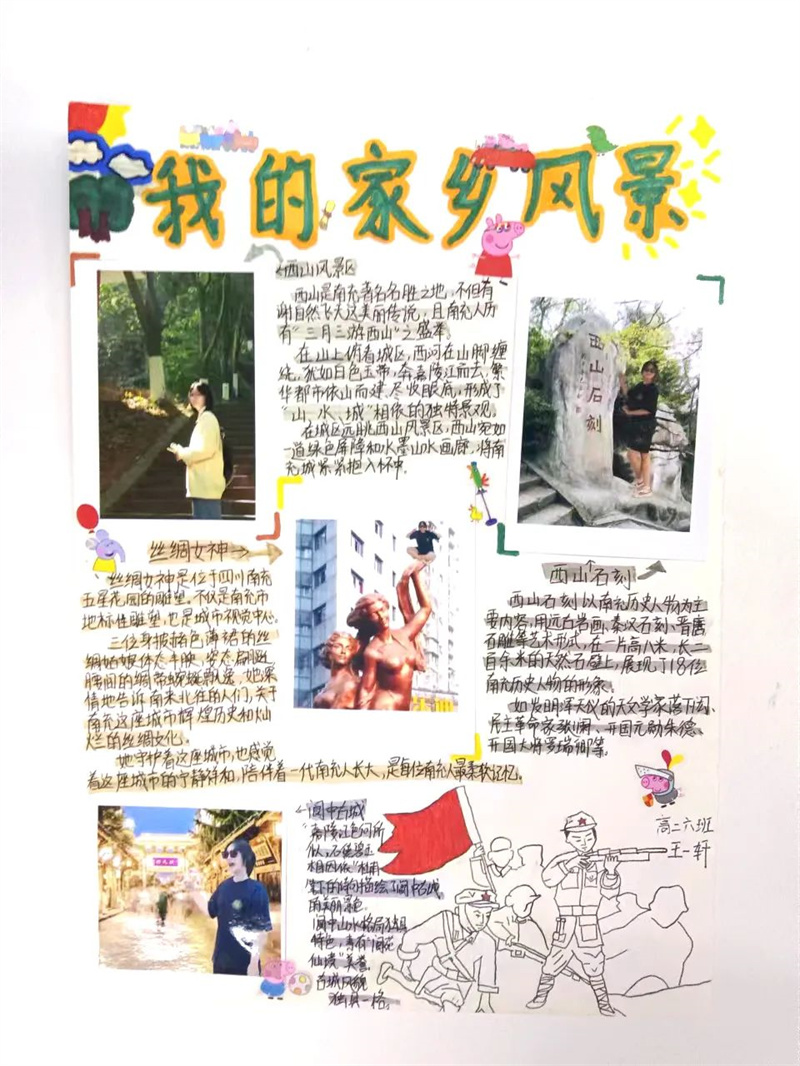 我的家乡风景
西山风景区
西山是南充著名名胜之地,不但有
谢自然飞天这美丽传说,且南充人历
有“三月三游西山”之盛举。
在山上俯看城区,西河在山脚缠
绕,犹如白色玉带,奔嘉陵江而去,繁
华都市依山而建,尽收眼底,形成了
“山、水、城”相依的独特景观。
在城区远眺西山风景区,西山宛如
一道绿色屏障和水墨山水画廊,将南
充城紧紧抱入怀中。
西山石刻
丝绸女神
丝绸女神是位于四川南充
五星花园的雕塑。不仅是南充市
地标性雕塑,也是城市视觉中心。
三位身披褐色薄裙的丝
绸姑娘体态丰腴,姿态
腰间的绸带蜿蜒飘逸。她深
情地告诉南来北往的人们,关于
南充这座城市辉煌历史和灿
烂的丝绸文化。
她守护着这座城市,也感觉
着这座城市的宁静祥和,陪伴着一代南充人长大,是每位南充人最柔软记忆。
西山石刻
西山石刻以南充历史人物为主
要内容,用远古岩画、秦汉石刻、晋唐
石雕等艺术形式,在一片高八米,长二
百余米的天然石壁上,展现了18位
南充历史人物的形象。
如发明浑天仪的天文学家落下闳、
民主革命家张澜、开国元勋朱德、
开国大将罗瑞卿等。
阆中古城
“嘉陵江色何所
似,石黛碧玉
相因依”杜甫
笔下的诗句描绘了阆中古城
的美丽景色。
阆中山水格局独具
特色,素有“阆苑
仙境”美誉。
古城风貌
独具一格。
高二六班
王一轩